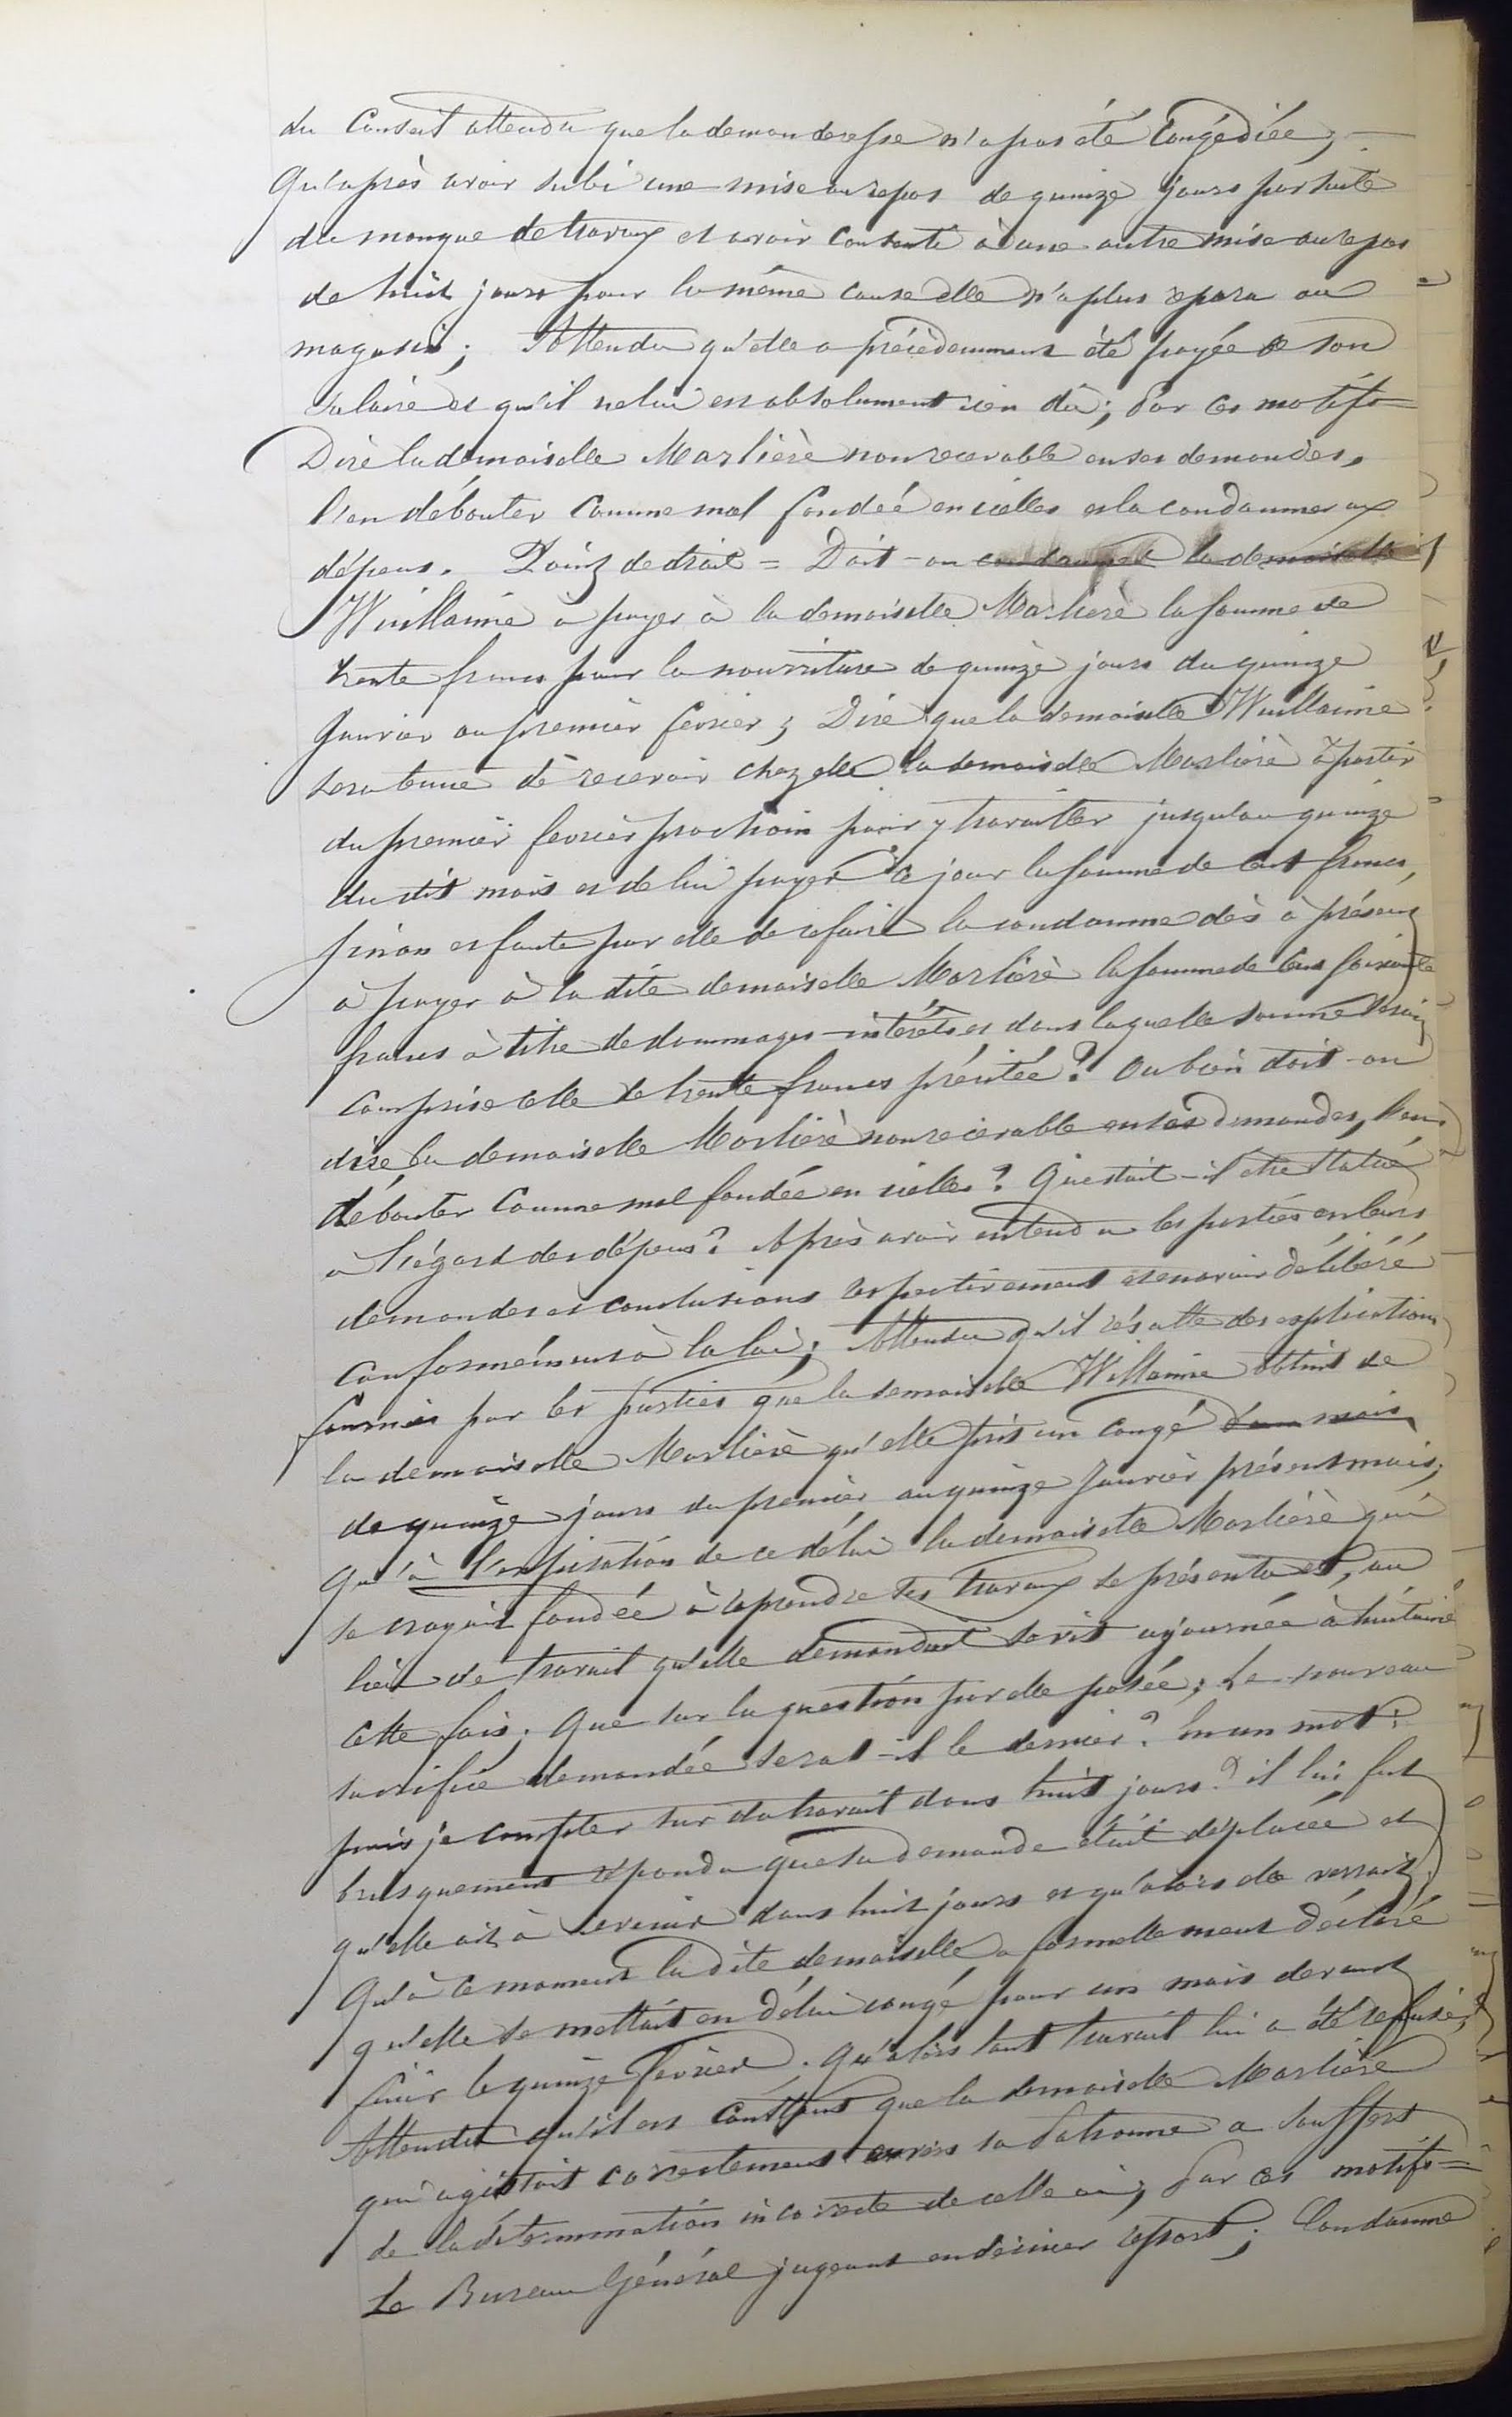 du Conseil attendu que la demanderesse n'a pas été Congédiée ;
Qu'après avoir subi une mise au repos de quinze jours par suite
du manque de travaux et avoir consenti à une autre mise au repos
de huit jours pour la même cause elle n'a plus reparu au
magasin ; Attendu qu'elle a précédemment été payée de son
salaire et qu'il ne lui est absolument rien dû ; Par ces motifs =
Dire la demoiselle Marlière non recevable en ses demandes,
l'en débouter comme mal fondée en icelles et la condamner aux
dépens. Point de droit = Doit-on condamner la demoiselle
Wuillaume à payer à la demoiselle Marlière la somme de
trente francs pour la nourriture de quinze jours du quinze
Janvier au premier fevrier ; Dire que la demoiselle Wuillaume
sera tenue de recevoir chez elle la demoiselle Marlière à partir
du premier fevrier prochain pour y travailler jusqu'au quinze
du dit mois et de lui payer ce jour la somme de cent francs,
sinon et faute par elle de ce faire la condamne dès à présent
à payer à la dite demoiselle Marlière la somme de cent soixante
francs à titre de dommages-intérêts et dans laquelle somme serait
comprise celle de trente francs précitée ? Ou bien doit-on
dire la demoiselle Marlière non recevable en ses demandes, l'en
débouter comme mal fondée en icelles ? Que doit-il être statué
à l'égard des dépens ? Après avoir entendu les parties en leurs
demandes et conclusions respectivement et en avoir délibéré
conformément à la loi ; Attendu qu'il résulte des explications
fournies par les parties que la demoiselle Willaume obtint de
la demoiselle Marlière qu'elle prit un congé d'un mois
de quinze jours du premier au quinze Janvier présent mois ;
Qu'à l'expiration de ce délai la demoiselle Marlière qui
se croyait fondée à reprendre ses travaux se présenta et, au
lieu de travail qu'elle demandait se vit ajournée à huitaine
cette fois. Que sur la question par elle posée ; Le nouveau
sacrifice demandée serat-il le dernier ? En un mot :
puis je compter sur du travail dans huit jours ? il lui fut
brusquement répondu que sa demande était déplacée et
qu'elle ait à revenir dans huit jours et qu'alors elle verrait ;
Qu'à ce moment la dite demoiselle a formellement déclaré
qu'elle se mettait en délai congé pour un mois devant
finir le quinze fevrier. Qu'alors tout travail lui a été refusé ;
Attendu qu'il est constant que la demoiselle Marlière
qui agissait corectement envers sa Patronne a souffert
de la détermination incorecte de celle ci ; Par ces motifs =
Le Bureau Général jugeant en dernier ressort ; Condamne